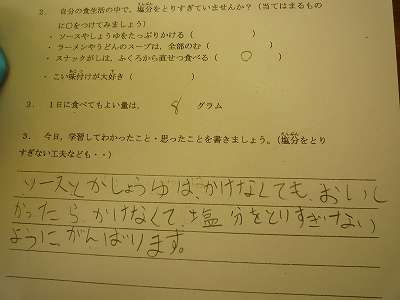 2. 自分の食生活の中で、塩分をとりすぎていませんか?(当てはまるもの
に○をつけてみましょう)
・ ソースやしょうゆをたっぷりかける (            )
・ ラーメンやうどんのスープは、全部のむ (            )
・ スナックがしは、ふくろから直せつ食べる (   ○   )
・ こい味付けが大好き (            )
2. 1日に食べてもよい量は、 8 グラム
3. 今日、学習してわかったこと・思ったことを書きましょう。(塩分をとり
すぎない工夫なども・・)
ソースとかしょうゆは、かけなくても、おいし
かったら、かけなくて、塩分をとりすぎない
ようにがんばります。